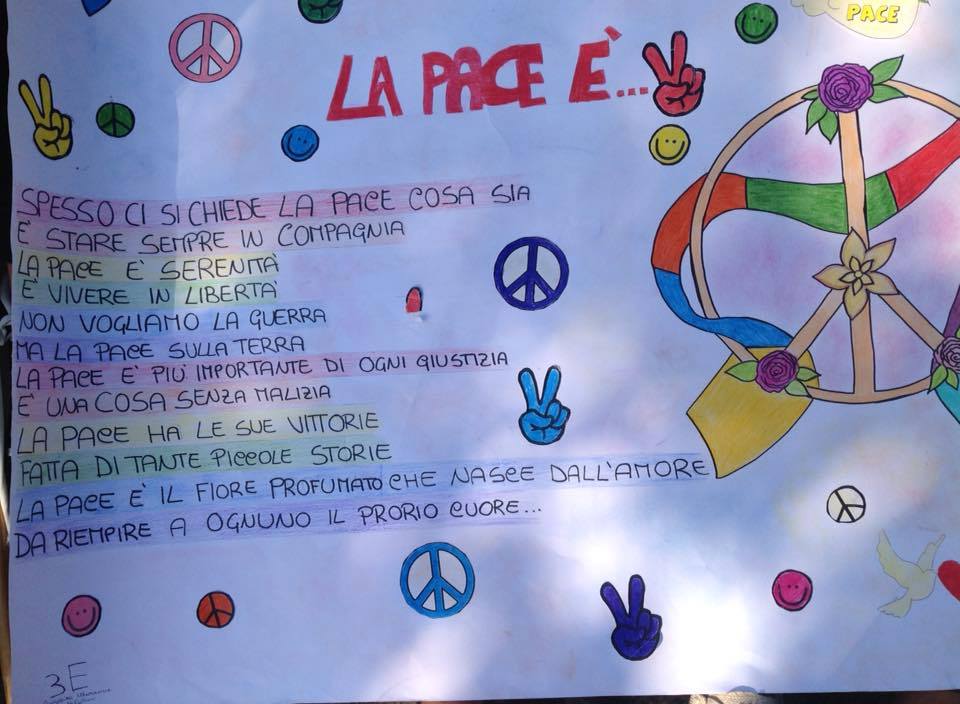 PACE
LA PACE È...
SPESSO CI SI CHIEDE LA PACE COSA SIA
E' STARE SEMPRE IN COMPAGNIA
LA PACE E' SERENITÀ
E' VIVERE IN LIBERTÀ
NON VOGLIAMO LA GUERRA
MA LA PACE SULLA TERRA
LA PACE E' PIÙ IMPORTANTE DI OGNI GIUSTIZIA
E' UNA COSA SENZA MALIZIA
LA PACE HA LE SUE VITTORIE
FATTA DI TANTE PICCOLE STORIE
LA PACE E' IL FIORE PROFUMATO CHE NASCE DALL'AMORE
DA RIEMPIRE A OGNUNO IL PRORIO CUORE...
3E